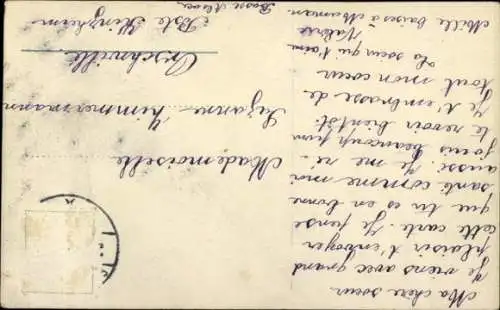 Ma chère soeur
Je viens avec grand
plaisir t'envoyer
cette carte. Je pense
que tu es en bonne
santé comme moi
aussi. Je me ré-
jouis beaucoup pour
te revoir bientôt.
Je t'embrasse de
tout mon coeur
La soeur qui t'aim
Valérie
Mille baises à Maman.
Mademoiselle
Suzanne Zimmermann
Orschwiller
Poste Kinzheim
Basse Alsace